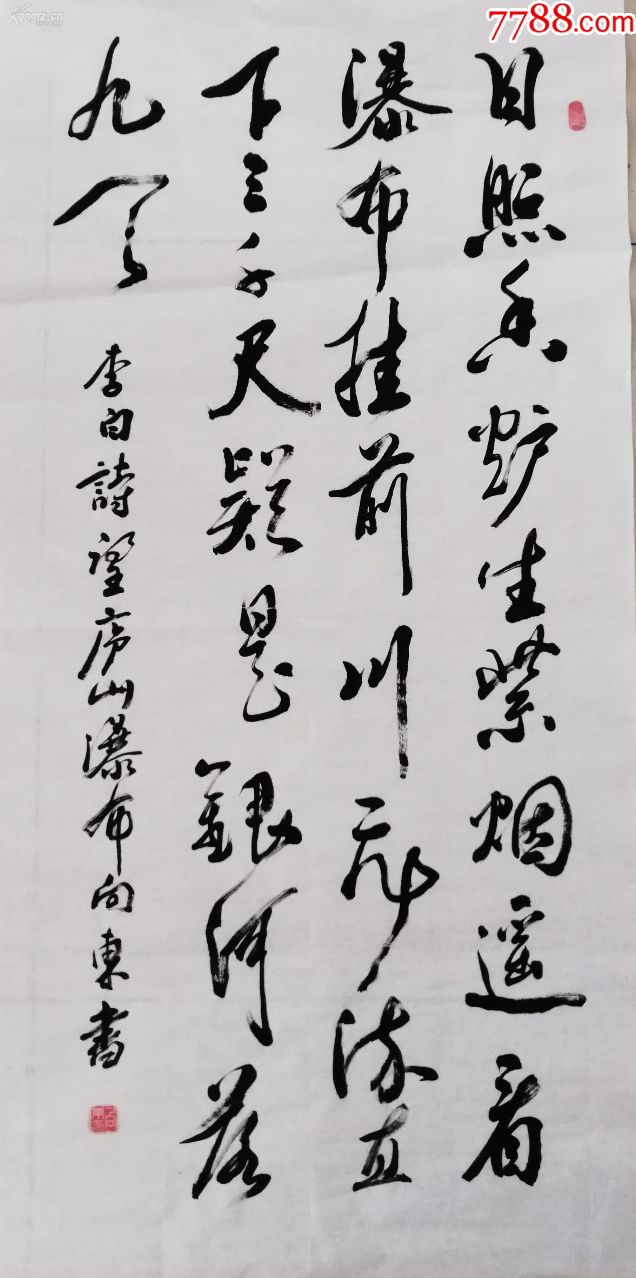 Kongfz.cn
7788.com
日照香炉生紫烟遥看
瀑布挂前川飞流直
下三千尺疑是銀河落
九天
李白詩望庐山瀑布向東書